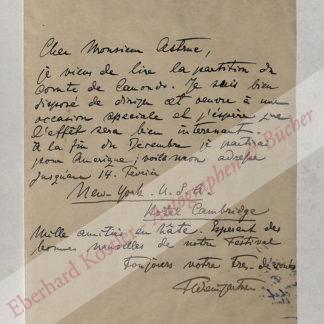 Cher Monsieur Astruc,
je viens de lire la partition du
comte de Camondo. Je suis bien
disposé de diriger cet oeuvre à une
occasion speciale et j'éspère que
l'effet sera bien interessant.
A la fin du Decembre je partirai
pour Amerique; voilà mon adresse
jusqu'au 14. Fevrier
New-York. U.S.A.
Hotel Cambridge
Mille amitiés en hâte. Esperant des
bonnes nouvelles de notre Festival
Toujours votre très dévoué
FWeingartner
Eberhard Köstler Autographen & Bücher